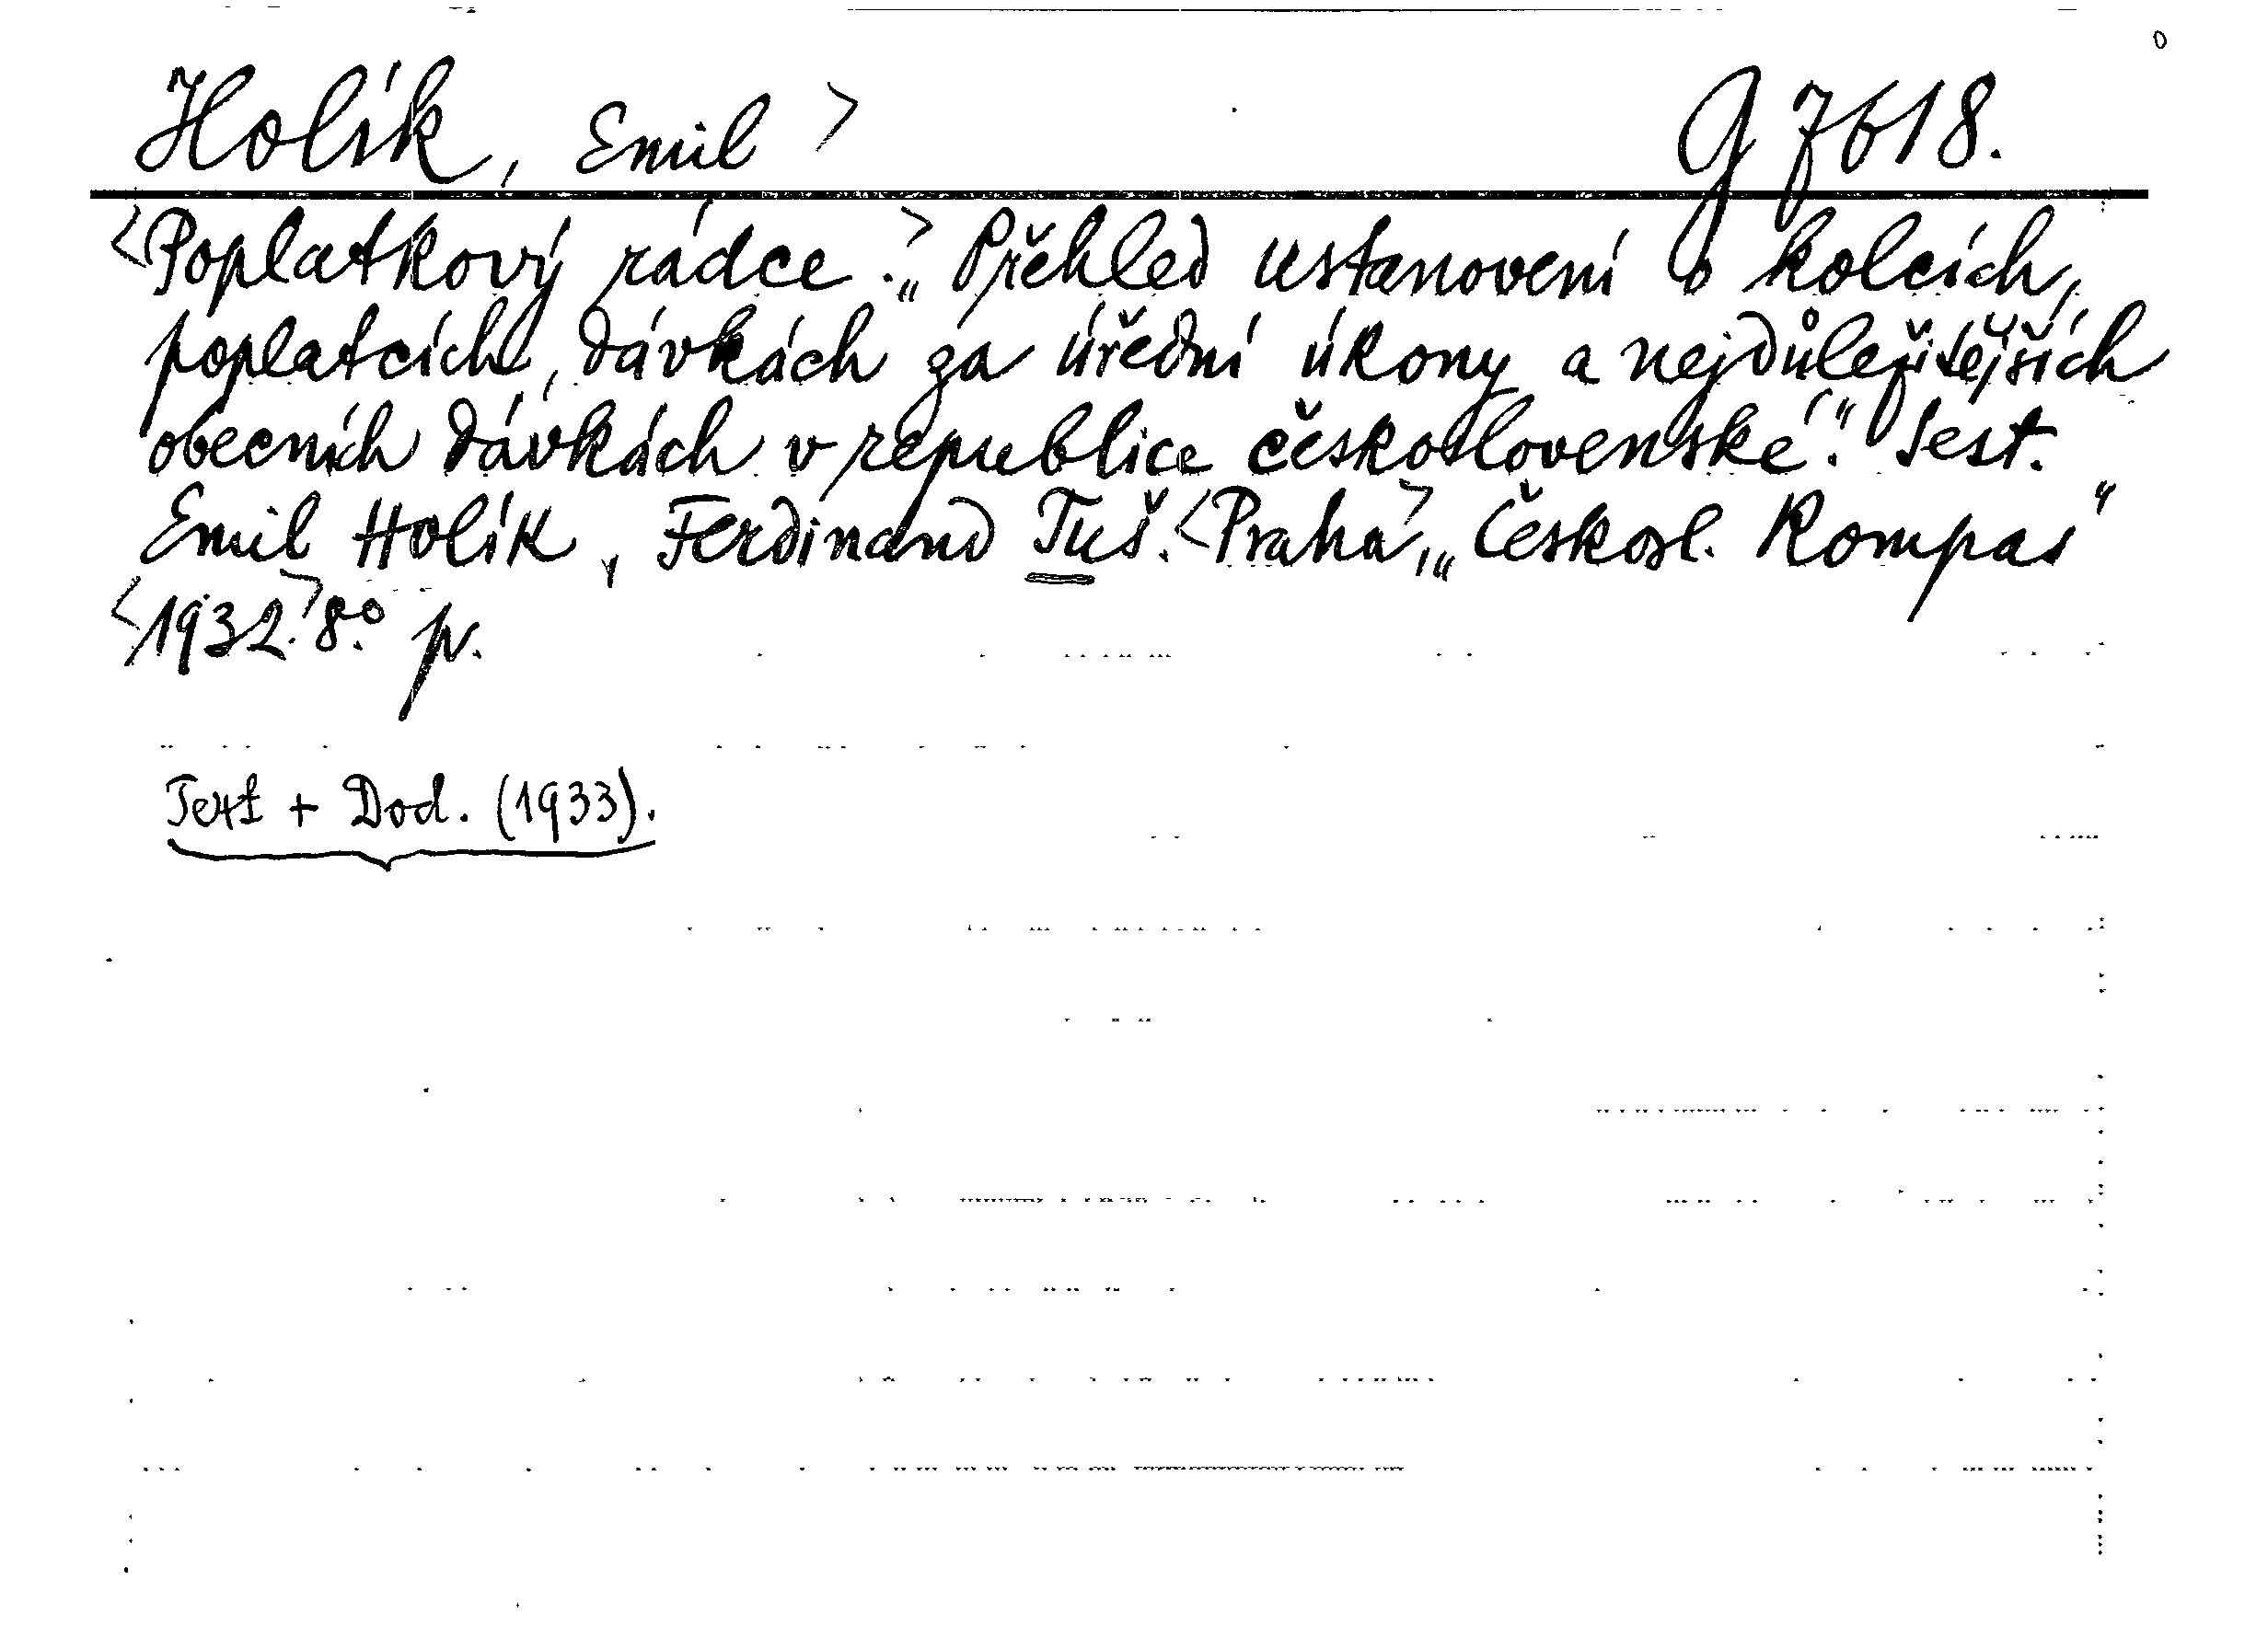 Holík, Emil > G 7618.
<Poplatkový rádce.> „Přehled ustanovení o kolcích,
poplatcích, dávkách za úřední úkony a nejdůležitějších
obecních dávkách v republice československé." Sest.
Emil Holík, Ferdinand Tuš. <Praha>, „Českosl. Kompas"
<1932.> 8° p.
Text + Dod. (1933).